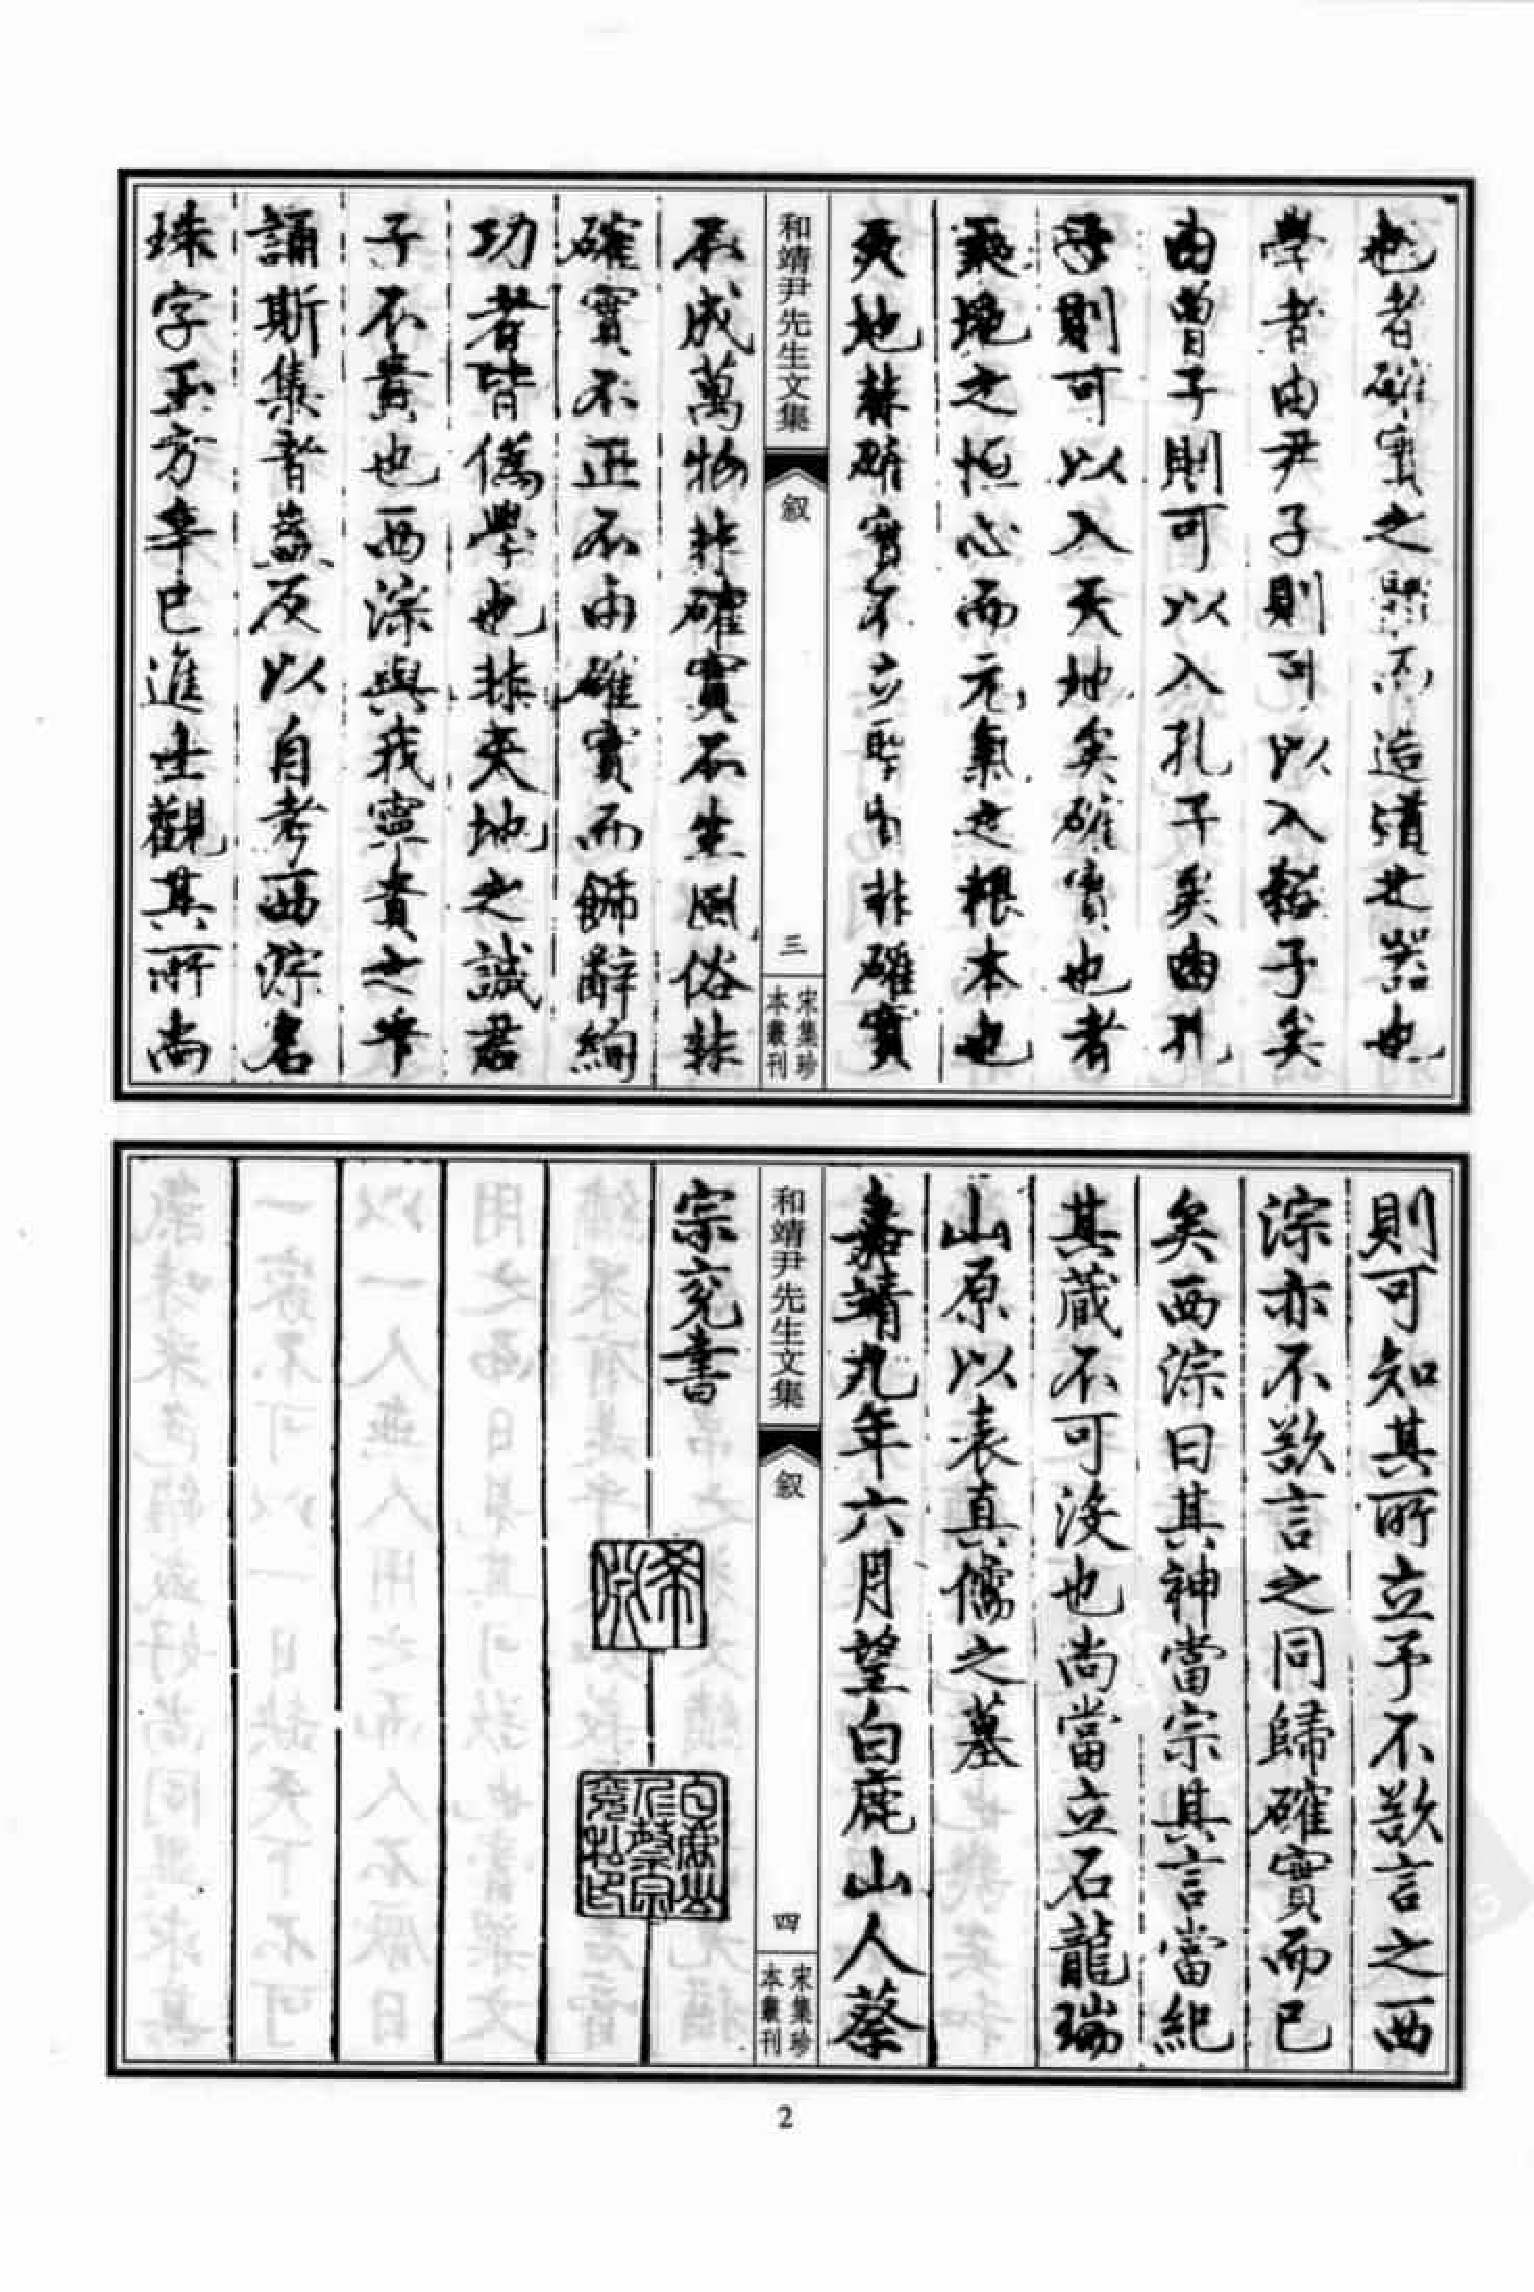 也者確實之
不造道之器也
學者由尹子則可以入程子矣
由曾子則可以入孔子矣由孔
子則可以入天地矣確實也者
天地之恒心而元氣之根本也
天地非確實不立聖
非確實
不成萬物非確實不生風俗非
確實不正不由確實而飾辭絢
功者皆偽學也非天地之誠君
子不貴也西淙與我寧貴之乎
誦斯集者蓋反以自考西淙名
珠字玉方辛巳進士觀其所尚
和靖尹先生文集
叙
三
宋集珍
本叢刊
則可知其所立予不欲言之西
淙亦不欲言之同歸確實而已
矣西淙曰其神當宗其言當紀
其蔵不可沒也尚當立石龍瑞
山原以表真儒之墓
嘉靖九年六月望白鹿山人蔡
宗兗書
和靖尹先生文集
叙
四
宋集珍
本叢刊
2